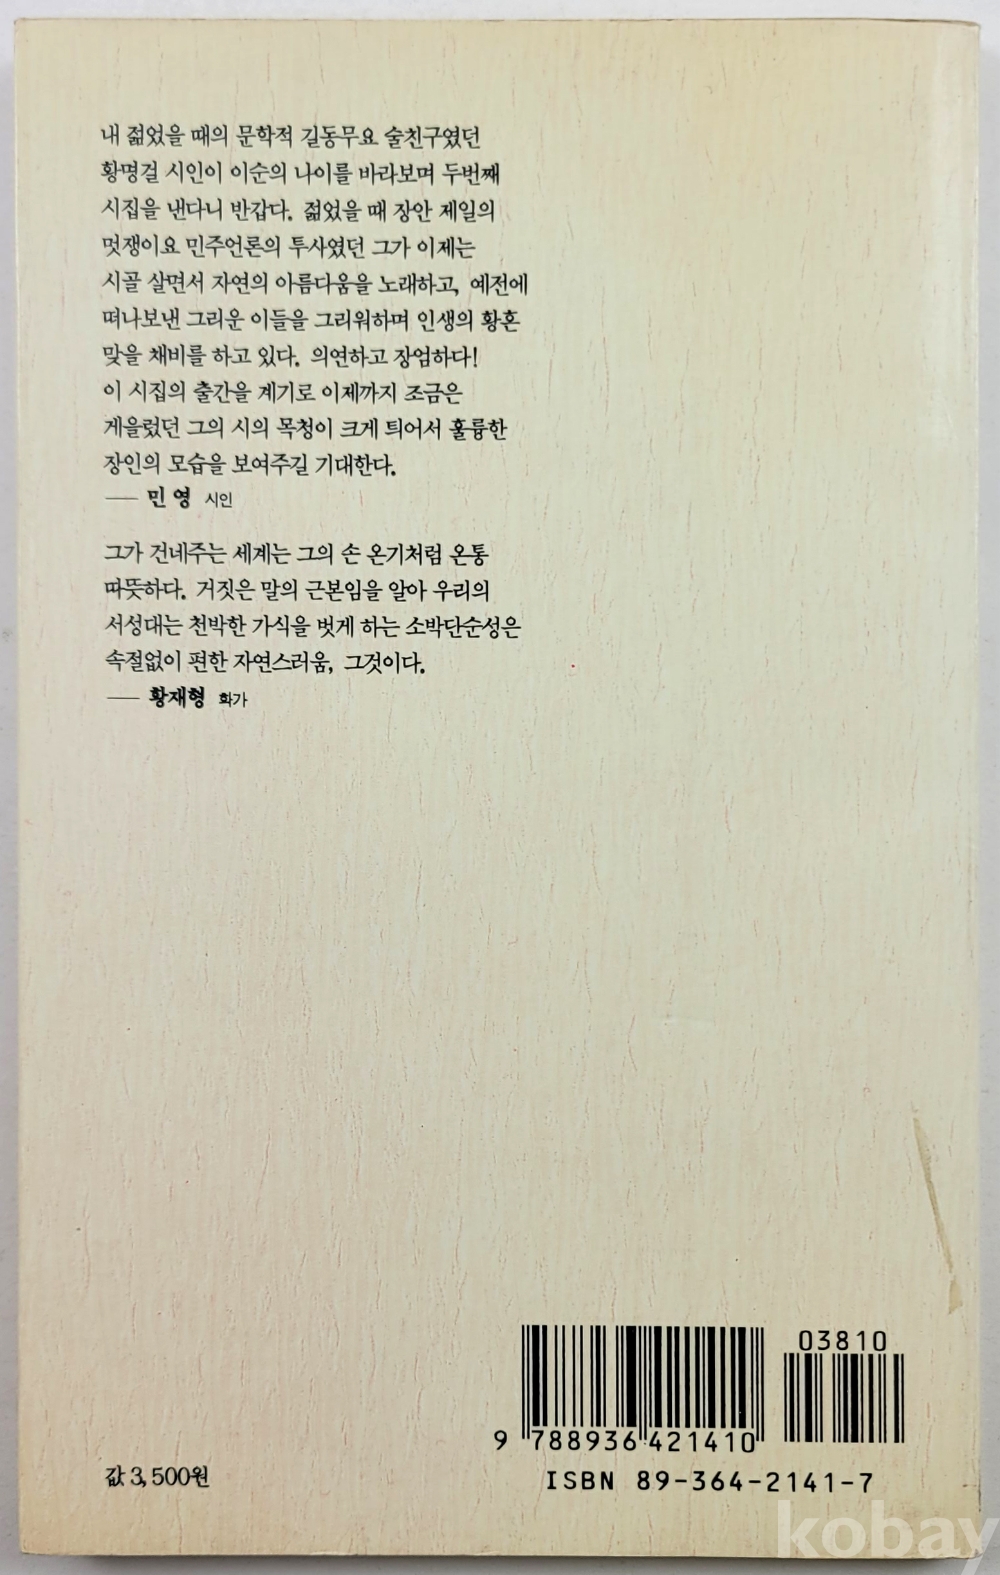 내 젊었을 때의 문학적 길동무요 술친구였던
황명걸 시인이 이순의 나이를 바라보며 두번째
시집을 낸다니 반갑다. 젊었을 때 장안 제일의
멋쟁이요 민주언론의 투사였던 그가 이제는
시골 살면서 자연의 아름다움을 노래하고, 예전에
떠나보낸 그리운 이들을 그리워하며 인생의 황혼
맞을 채비를 하고 있다. 의연하고 장엄하다!
이 시집의 출간을 계기로 이제까지 조금은
게을렀던 그의 시의 목청이 크게 틔어서 훌륭한
장인의 모습을 보여주길 기대한다.
── 민 영 시인
그가 건네주는 세계는 그의 손 온기처럼 온통
따뜻하다. 거짓은 말의 근본임을 알아 우리의
서성대는 천박한 가식을 벗게 하는 소박단순성은
속절없이 편한 자연스러움, 그것이다.
── 황재형 화가
03810
9 788936 421410
ISBN 89-364-2141-7
값 3,500원
kobay